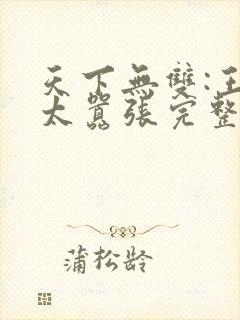 天下無雙:王
太囂張完整
蒲松龄